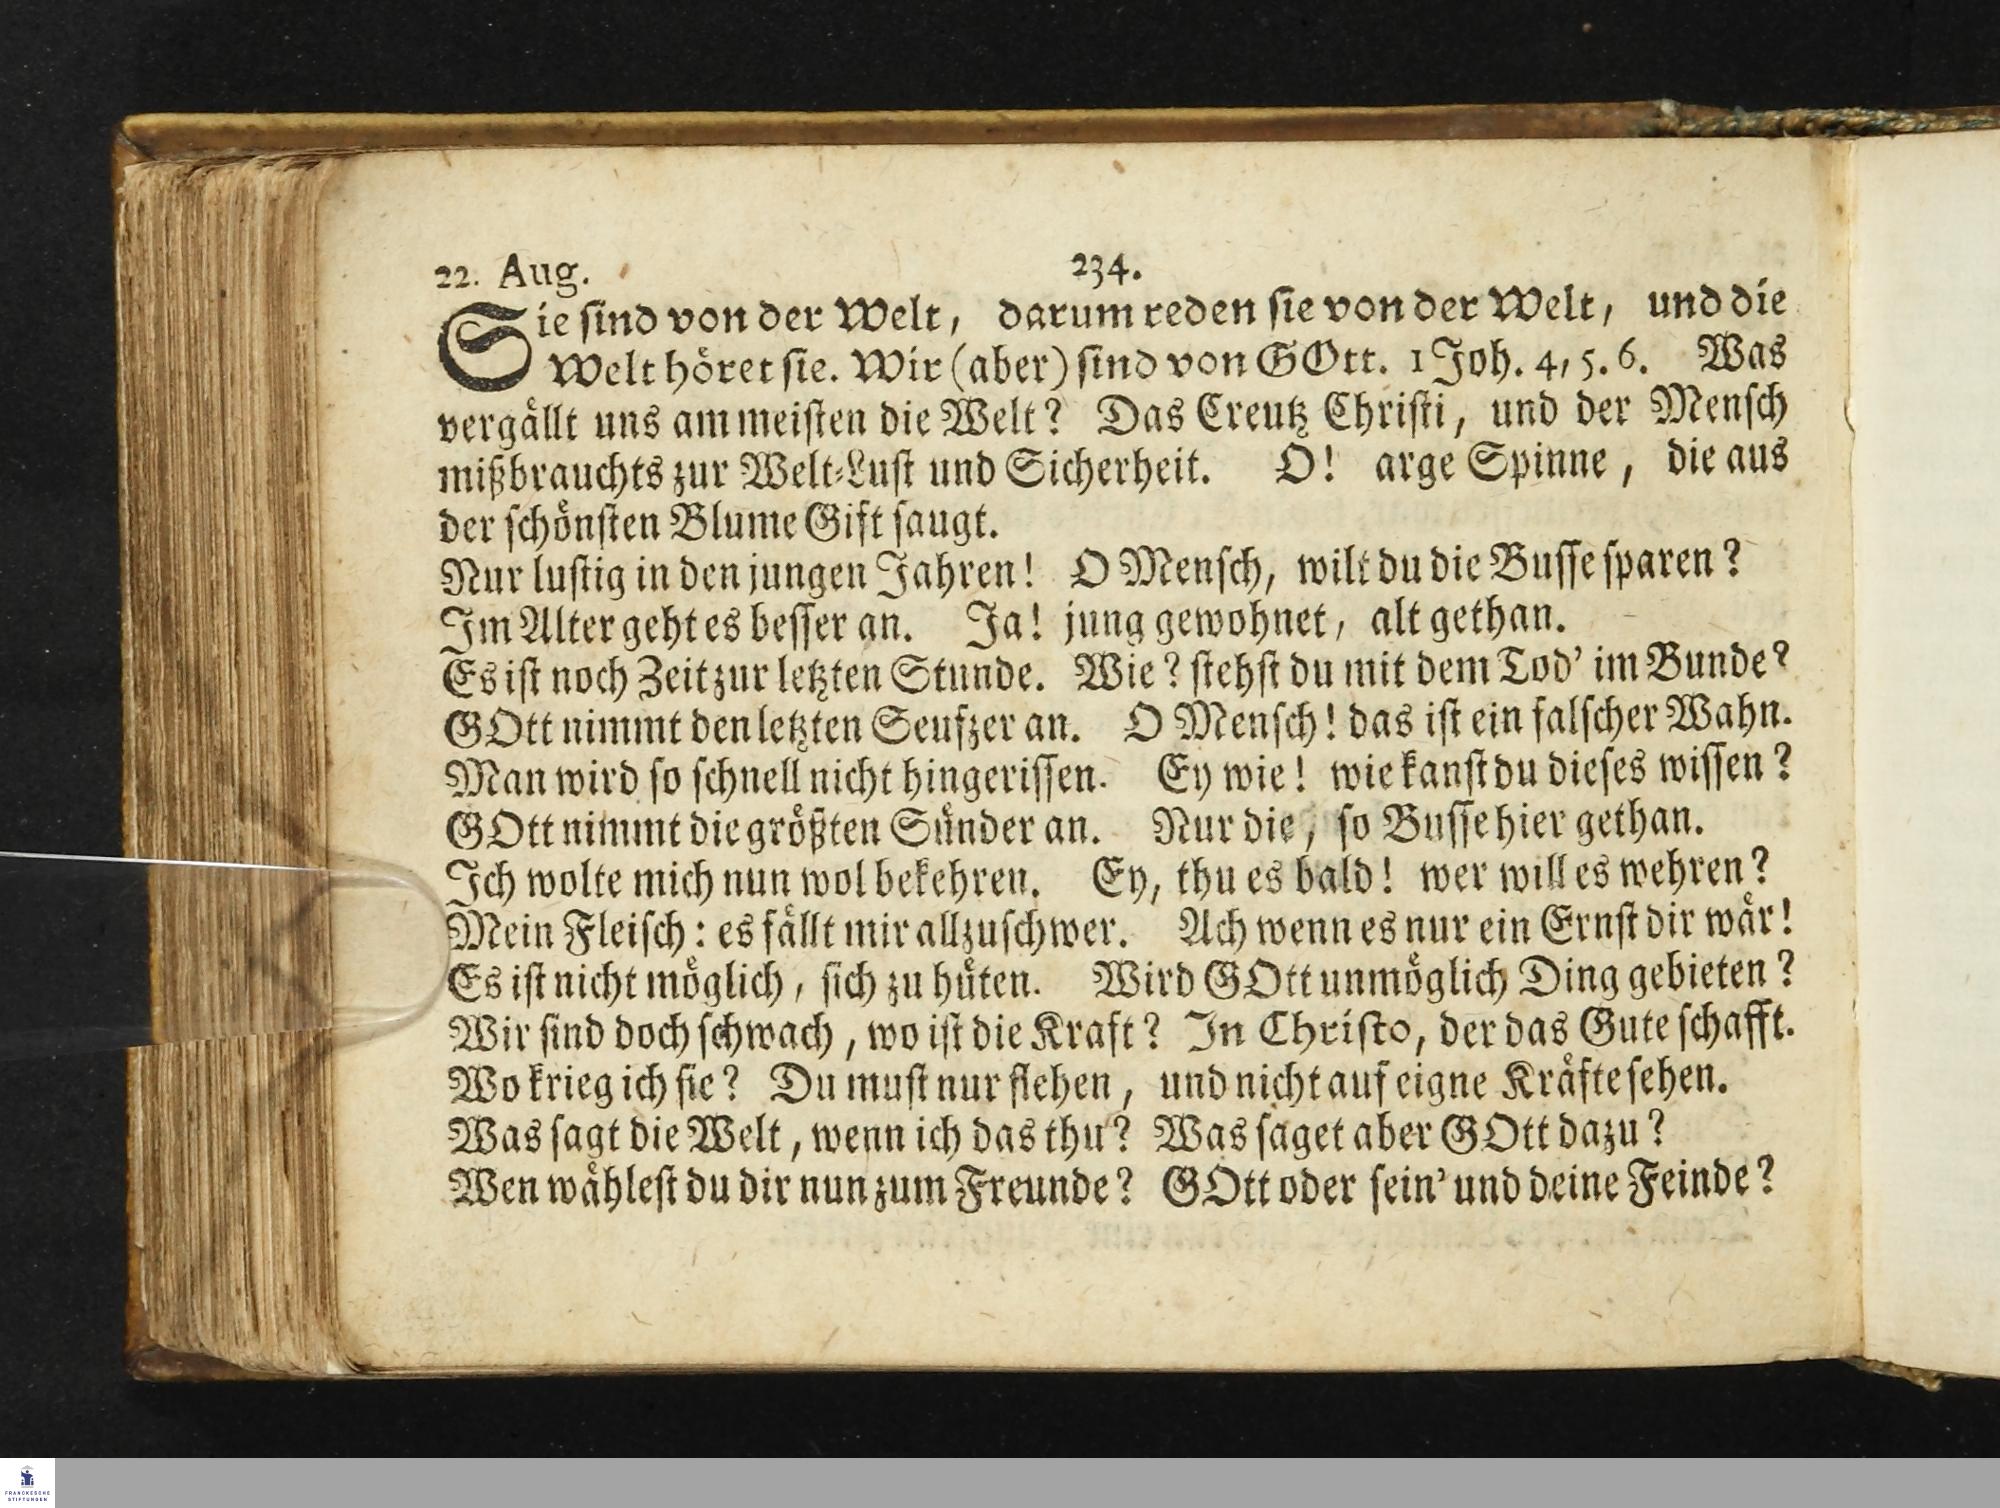 22. Aug. 234.
Sie sind von der Welt, darum reden sie von der Welt, und die
Welt höret sie. Wir (aber) sind von GOtt. 1 Joh. 4, 5. 6. Was
vergällt uns am meisten die Welt? Das Creutz Christi, und der Mensch
mißbrauchts zur Welt-Lust und Sicherheit. O! arge Spinne, die aus
der schönsten Blume Gift saugt.
Nur lustig in den jungen Jahren! O Mensch, wilt du die Busse sparen?
Im Alter geht es besser an. Ja! jung gewohnet, alt gethan.
Es ist noch Zeit zur letzten Stunde. Wie? stehst du mit dem Tod' im Bunde?
GOtt nimmt den letzten Seufzer an. O Mensch! das ist ein falscher Wahn.
Man wird so schnell nicht hingerissen. Ey wie! wie kanst du dieses wissen?
GOtt nimmt die größten Sünder an. Nur die, so Busse hier gethan.
Ich wolte mich nun wol bekehren. Ey, thu es bald! wer will es wehren?
Mein Fleisch: es fällt mir allzuschwer. Ach wenn es nur ein Ernst dir wär!
Es ist nicht möglich, sich zu hüten. Wird GOtt unmöglich Ding gebieten?
Wir sind doch schwach, wo ist die Kraft? In Christo, der das Gute schafft.
Wo krieg ich sie? Du must nur flehen, und nicht auf eigne Kräfte sehen.
Was sagt die Welt, wenn ich das thu? Was saget aber GOtt dazu?
Wen wählest du dir nun zum Freunde? GOtt oder sein' und deine Feinde?
FRANCKESCHE
STIFTUNGEN